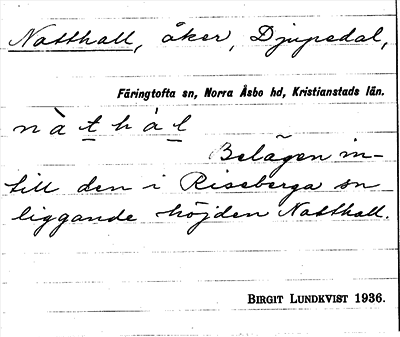 Natthall, åker, Djupedal,
Färingtofta sn, Norra Åsbo hd, Kristianstads län.
nàthál
Belägen in-
till den i Riseberga sn
liggande höjden Natthall.
BIRGIT LUNDKVIST 1936.